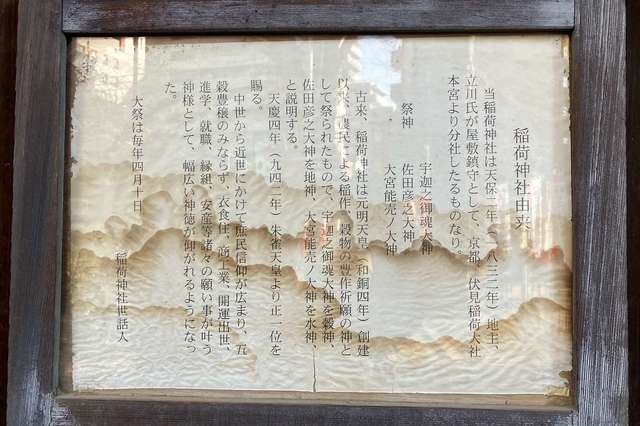 稲荷神社由来
当稲荷神社は天保二年(一八三二年)地主、
立川氏が屋敷鎮守として、京都、伏見稲荷大社
本宮より分社したるものなり。
祭神 宇迦之御魂大神
佐田彦之大神
大宮能売ノ大神
古来、稲荷神社は元明天皇(和銅四年)創建
以来、農民による稲作、穀物の豊作祈願の神と
して祭られたもので、宇迦之御魂大神を穀神、
佐田彦之大神を地神、大宮能売ノ大神を水神、
と説明する。
天慶四年(九四二年)朱雀天皇より正一位を
賜る。
中世から近世にかけて庶民信仰が広まり、五
穀豊穣のみならず、衣食住、商工業、開運出世、
進学、就職、縁組、安産等諸々の願い事が叶う
神様として、幅広い神徳が仰がれるようになっ
た。
大祭は毎年四月十日、
稲荷神社世話人